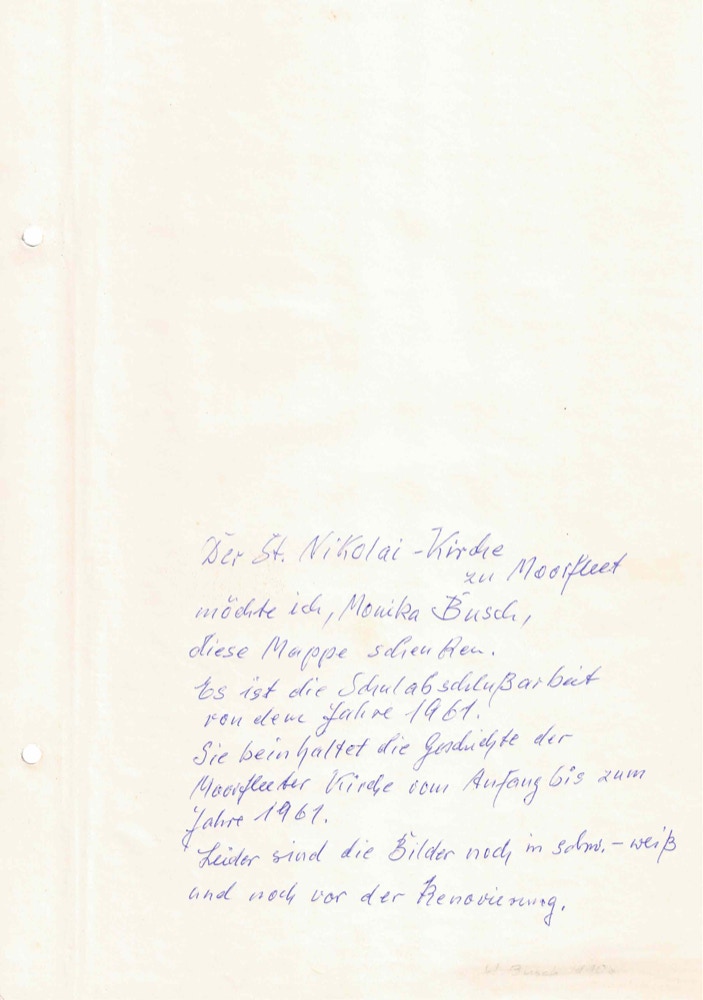 Der St. Nikolai-Kirche
zu Moorfleet
möchte ich, Monika Busch,
diese Mappe schenken.
Es ist die Schulabschlußarbeit
von dem Jahre 1961.
Sie beinhaltet die Geschichte der
Moorfleeter Kirche vom Anfang bis zum
Jahre 1961.
Leider sind die Bilder noch in schw.-weiß
und noch vor der Renovierung.
Busch